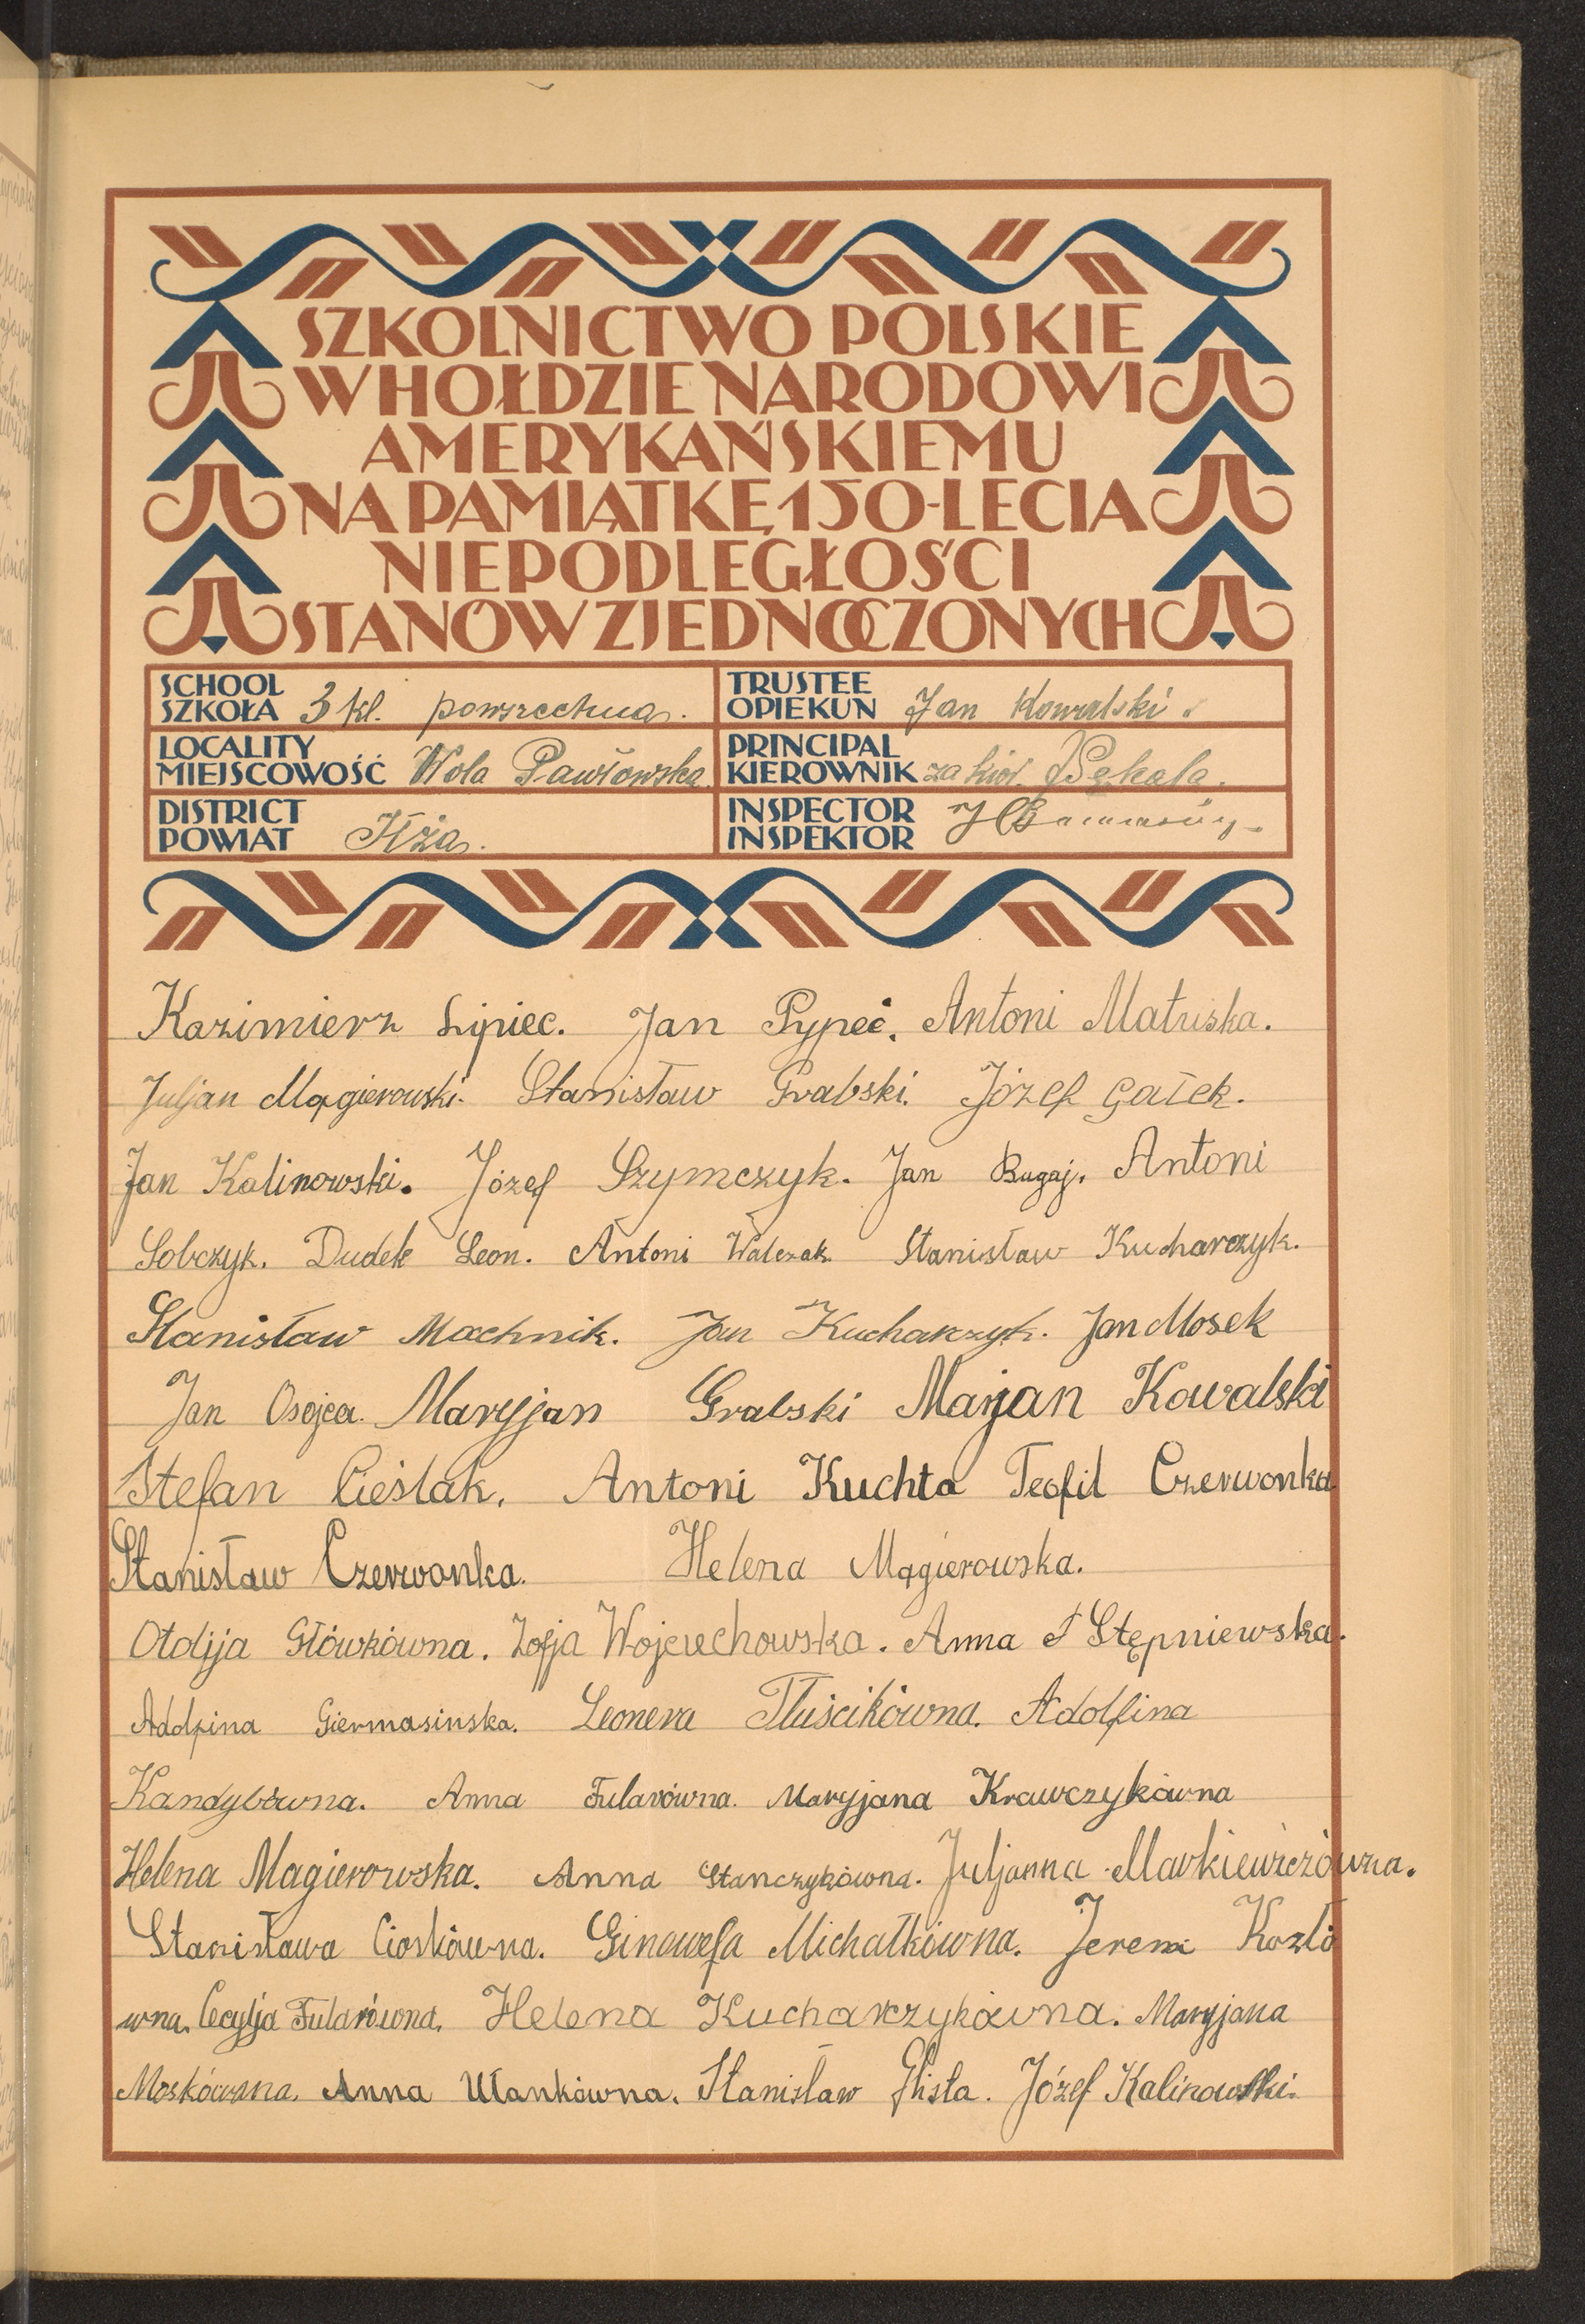 SZKOLNICTWO POLSKIE
W HOŁDZIE NARODOWI
AMERYKAŃSKIEMU
NA PAMIĄTKĘ 150-LECIA
NIEPODLEGŁOŚCI
STANÓW ZJEDNOCZONYCH
SCHOOL
SZKOŁA 3 kl. powszechna.
TRUSTEE
OPIEKUN Jan Kowalski.
LOCALITY
MIEJSCOWOŚĆ Wola Pawłowska
PRINCIPAL
KIEROWNIK za kier. Pękala.
DISTRICT
POWIAT Iłża.
INSPECTOR
INSPEKTOR
Kazimierz Lipiec. Jan Pypeć. Antoni Matuska.
Juljan Mągierowski. Stanisław Grabski. Józef Gałek.
Jan Kalinowski. Józef Szymczyk. Jan Bugaj. Antoni
Sobczyk. Dudek Leon. Antoni Walczak. Stanisław Kucharczyk.
Stanisław Machnik. Jan Kucharczyk. Jan Mosek
Jan Osojca. Maryjan Grabski Marjan Kowalski
Stefan Cieślak. Antoni Kuchta Teofil Czerwonka
Stanisław Czerwonka. Helena Mągierowska.
Otolija Główkówna. Zofja Wojciechowska. Anna Stępniewska.
Adolfina Giermasinska. Leonera Tłuścikówna. Adolfina
Kandybówna. Anna Fularówna. Maryjana Krawczykówna
Helena Magierowska. Anna Stanczykówna. Juljanna Markiewiczówna.
Stanisława Cioskówna. Ginowefa Michałkówna. Jerema Kozło
wna. Cecylja Fularówna. Helena Kucharczykówna. Maryjana
Moskówna. Anna Ułankówna. Stanisław Glista. Józef Kalinowski.